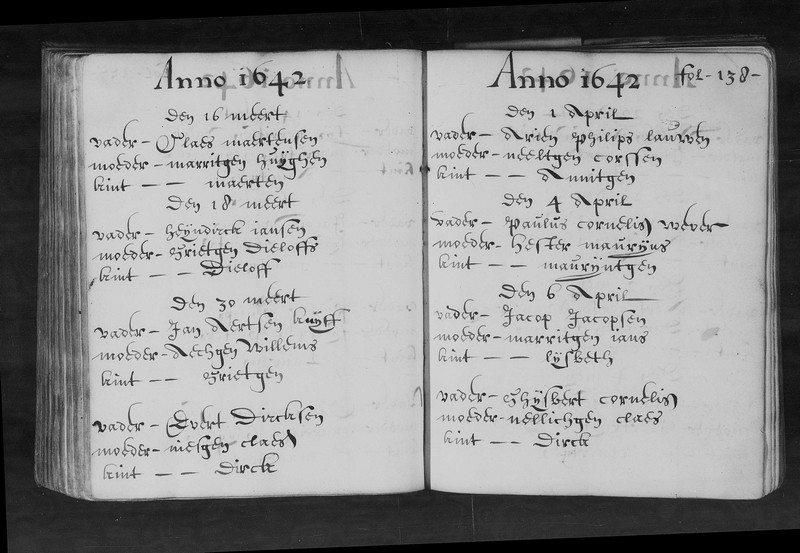 Anno 1642
Den 16 meert
vader - Claes maertensen
moeder - marritgen huyghen
kint - - maerten
Den 18 meert
vader - heyndirck iansen
moeder - Grietgen Dieloffs
kint - - Dieloff
Den 30 meert
vader - Jan Aertsen kuyff
moeder - Aechgen Willems
kint - - Grietgen
vader - Evert Dircksen
moeder - niesgen claes
kint - - Dirck
Anno 1642 fol - 138 -
Den 1 April
vader - Arien Philips
moeder - neeltgen corssen
kint - - Annitgen
Den 4 April
vader - Paulus cornelis wever
moeder - hester mauryus
kint - - mauryntgen
Den 6 April
vader - Jacop Jacopsen
moeder - marritgen ians
kint - - lysbeth
vader - Ghysbert cornelis
moeder - nellichgen claes
kint - - Dirck